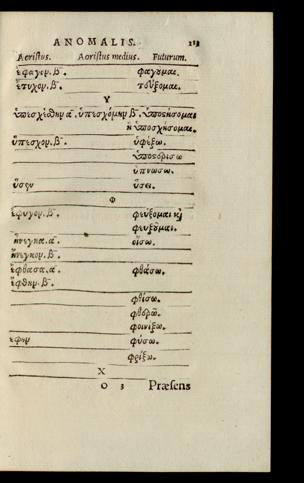 ANOMALIS. 213
Aoristus. Aoristus medius. Futurum.
ἔφαγον. β. φαγοῦμαι.
ἔτυχον. β. τεύξομαι.
Υ
ὑπεσχέθην α. ὑπεσχόμην β. ὑποσχήσομαι
ὑπέσχον. β. ὑφέξω.
ὑπνώσω.
ὗσον ὗσει.
Φ
ἔφυγον. β. φεύξομαι κὶ
φευξοῦμαι.
ἤνεγκα. α. οἴσω.
ἤνεγκον. β.
ἔφθασα. α. φθάσω.
ἔφθην. β.
φθίσω.
φθορῶ.
φοινίξω.
ἔφην φύσω.
φρίξω.
Χ
O 3 Præsens